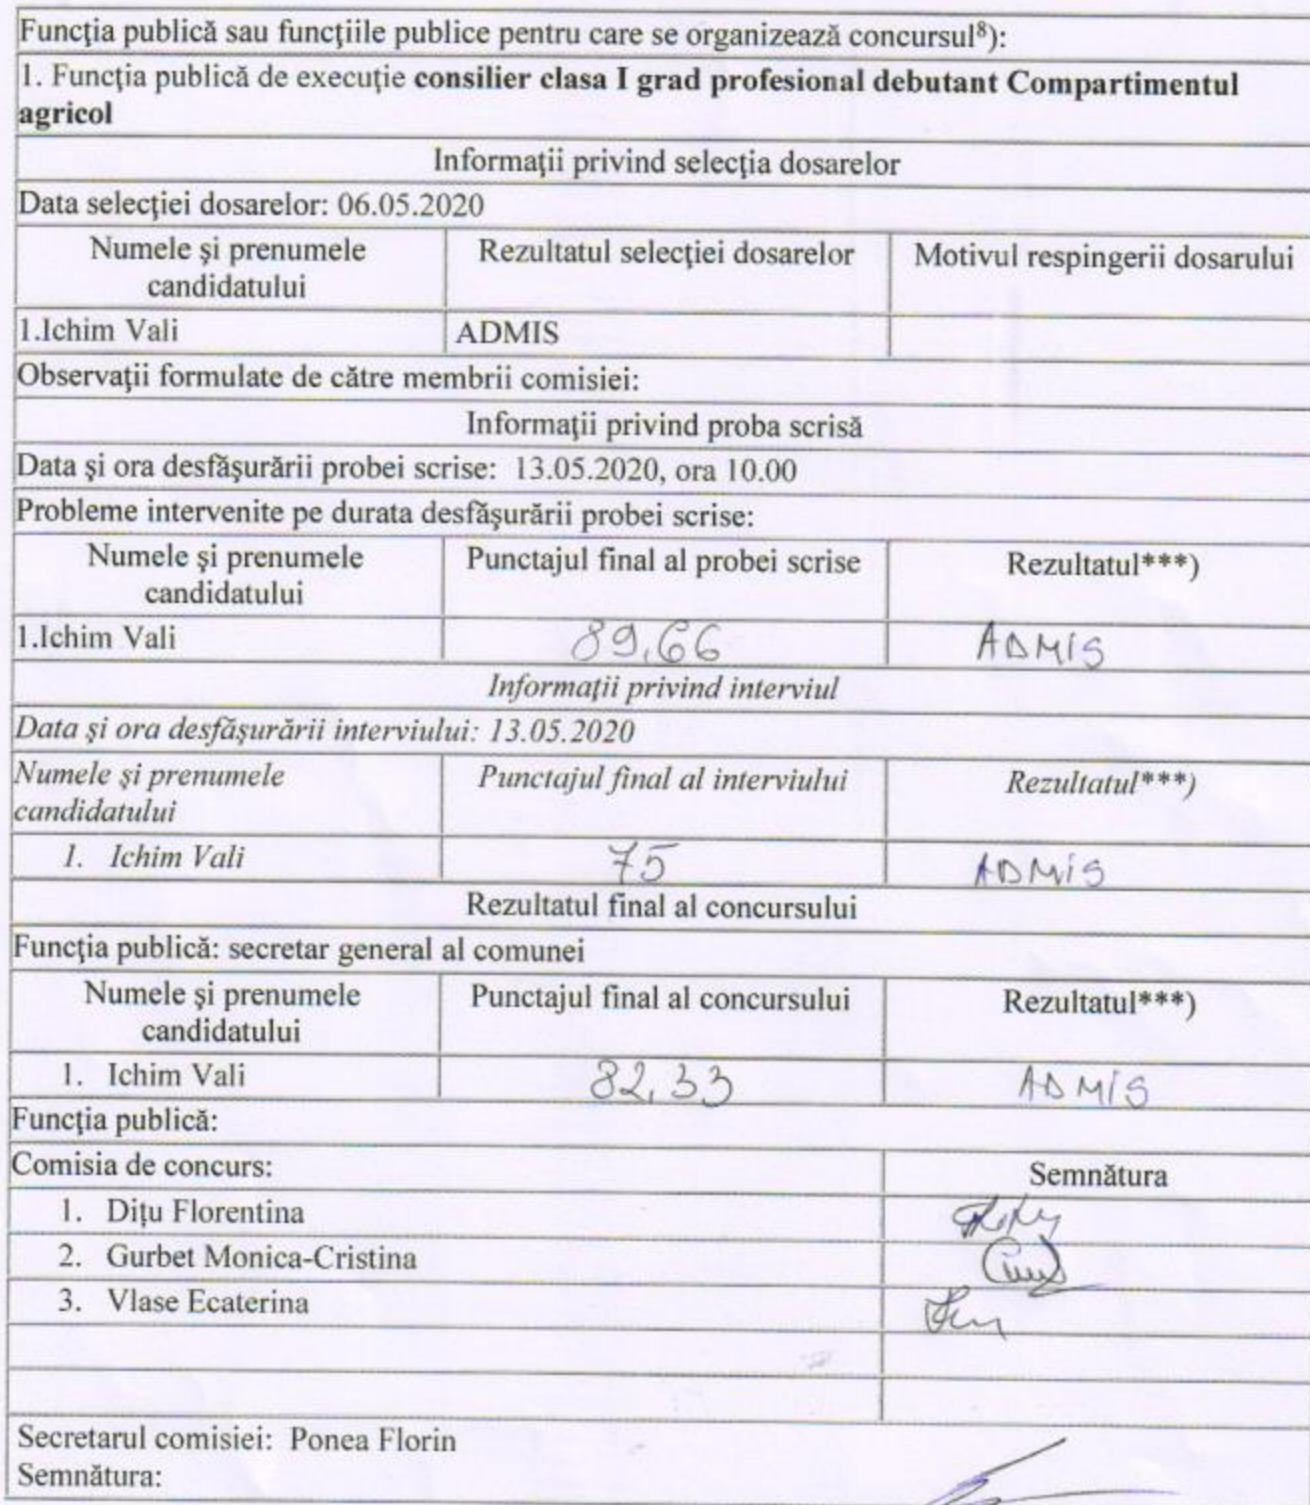 Funcţia publică sau funcţiile publice pentru care se organizează concursul⁸):
1. Funcţia publică de execuţie consilier clasa I grad profesional debutant Compartimentul
agricol
Informaţii privind selecţia dosarelor
Data selecţiei dosarelor: 06.05.2020
Numele şi prenumele
candidatului
Rezultatul selecţiei dosarelor
Motivul respingerii dosarului
1.Ichim Vali
ADMIS
Observaţii formulate de către membrii comisiei:
Informaţii privind proba scrisă
Data şi ora desfăşurării probei scrise: 13.05.2020, ora 10.00
Probleme intervenite pe durata desfăşurării probei scrise:
Numele şi prenumele
candidatului
Punctajul final al probei scrise
Rezultatul***)
1.Ichim Vali
89,66
ADMIS
Informaţii privind interviul
Data şi ora desfăşurării interviului: 13.05.2020
Numele şi prenumele
candidatului
Punctajul final al interviului
Rezultatul***)
1. Ichim Vali
75
ADMIS
Rezultatul final al concursului
Funcţia publică: secretar general al comunei
Numele şi prenumele
candidatului
Punctajul final al concursului
Rezultatul***)
1. Ichim Vali
82,33
ADMIS
Funcţia publică:
Comisia de concurs:
Semnătura
1. Diţu Florentina
2. Gurbet Monica-Cristina
3. Vlase Ecaterina
Secretarul comisiei: Ponea Florin
Semnătura: